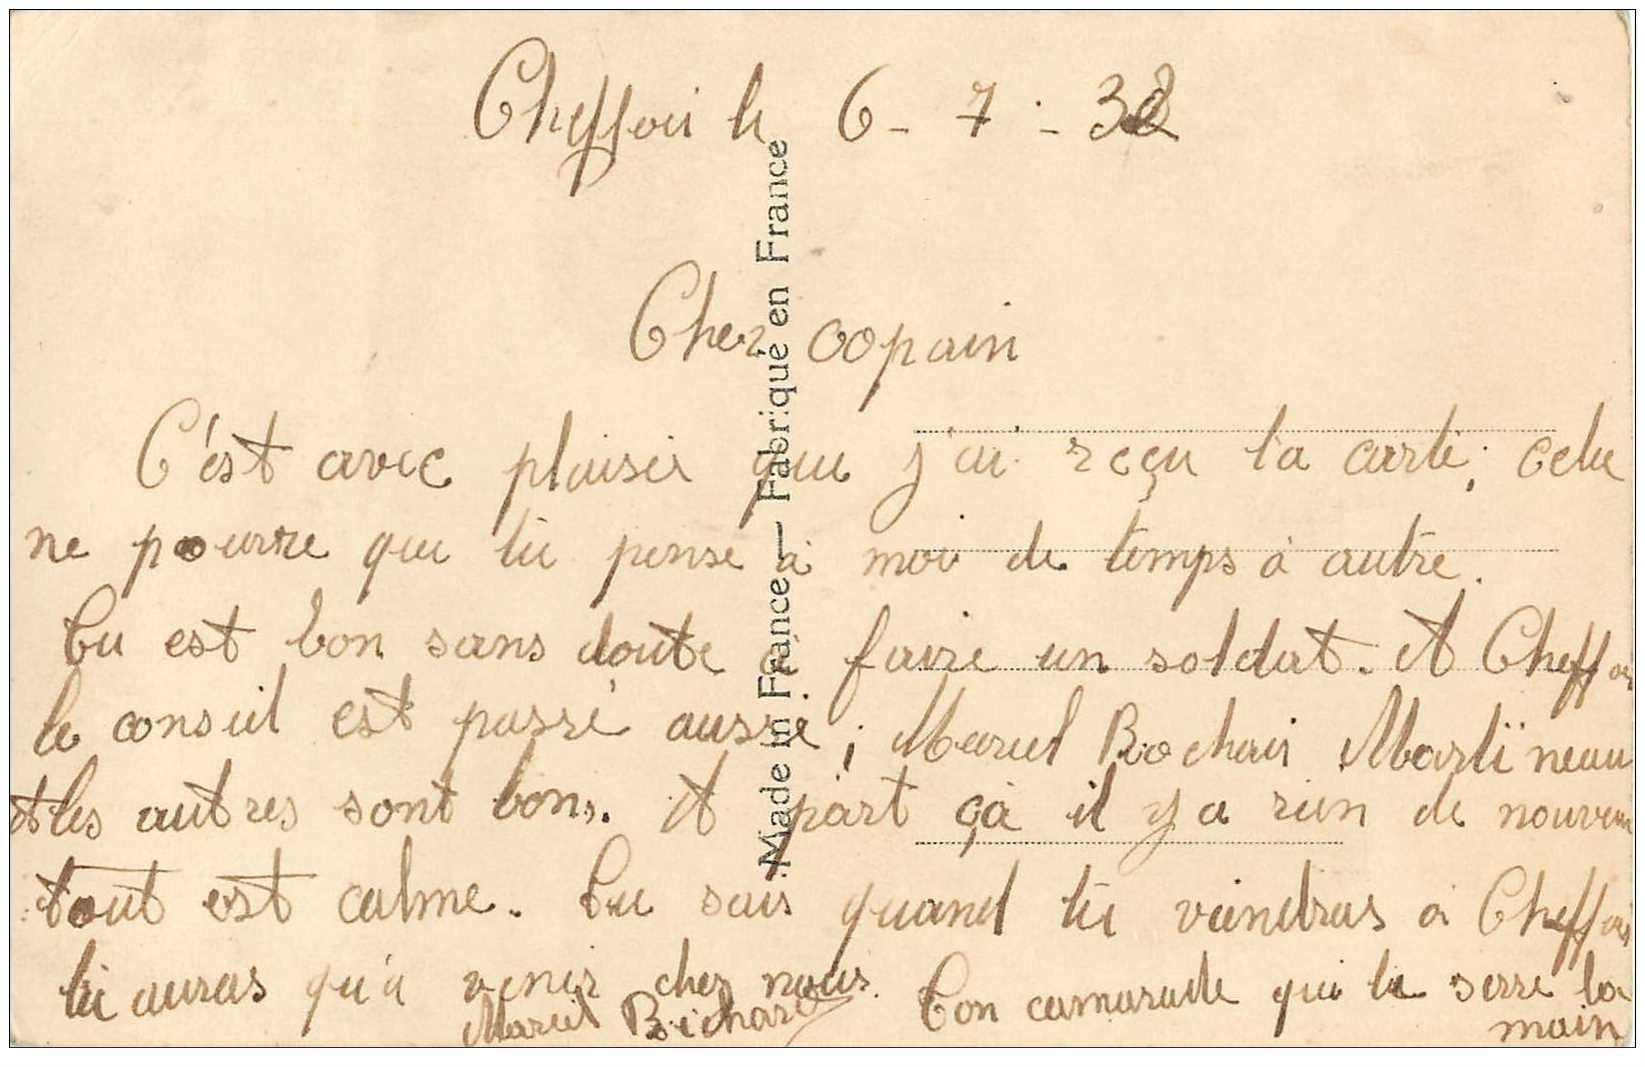 Cheffois le 6-7-38
Cher copain
C'est avec plaisir que j'ai reçu ta carte; celu
ne pourre que tu pense à moi de temps à autre.
Tu est bon sans doute à faire un soldat. A Cheffois
le conseil est passé aussi; Marcel Bochais Martineau
et les autres sont bons. A part çà il y a rien de nouveau
tout est calme. Tu sais quand tu viendras à Cheffois
tu auras qu'à venir chez nous. Ton camarade qui te serre la
main
Marcel Bichard
Made in France — Fabriqué en France